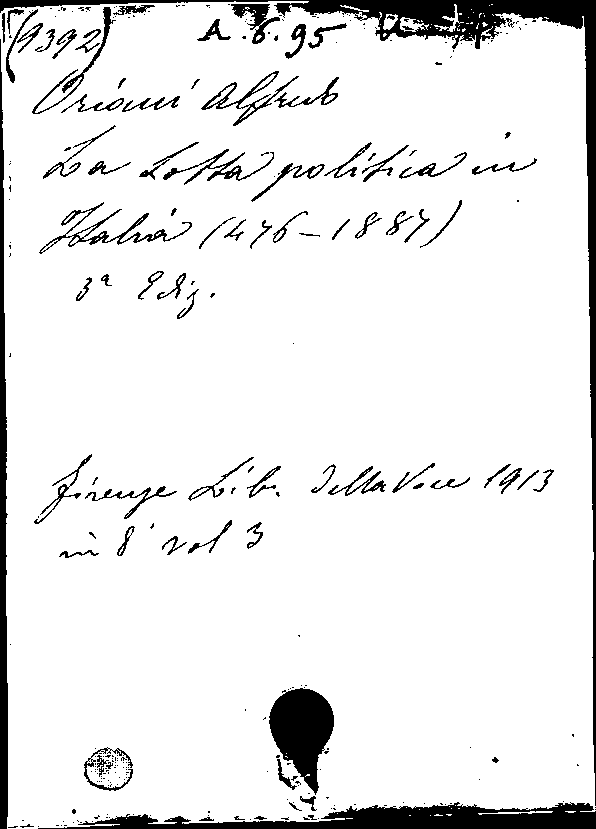 (9392) A.6.95
Oriani Alfredo
La Lotta politica in
Italia (476-1887)
3ª Ediz.
Firenze Lib. della Voce 1913
in 8° vol 3